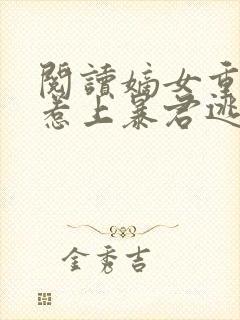 閱讀嫡女重
惹上暴君逃
金秀吉